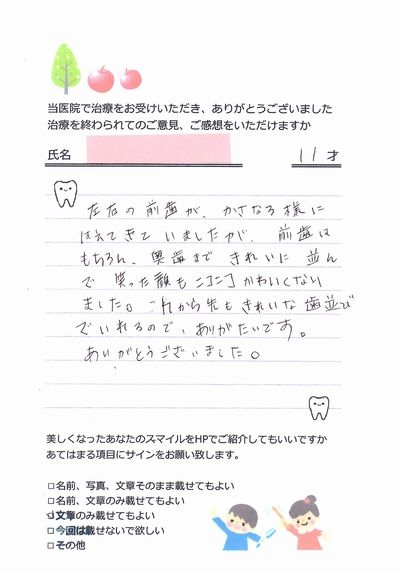 当医院で治療をお受けいただき、ありがとうございました
治療を終わられてのご意見、ご感想をいただけますか
氏名 11才
左右の前歯が、かさなる様に
はえてきていましたが、前歯は
もちろん、奥歯まできれいに並ん
で笑った顔もニコニコかわいくない
ました。これから先もきれいな歯並び
でいれるので、ありがたいです。
ありがとうございました。
美しくなったあなたのスマイルをHPでご紹介してもいいですか
あてはまる項目にサインをお願い致します。
□名前、写真、文章そのまま載せてもよい
□名前、文章のみ載せてもよい
文章のみ載せてもよい
□今回は載せないで欲しい
□その他